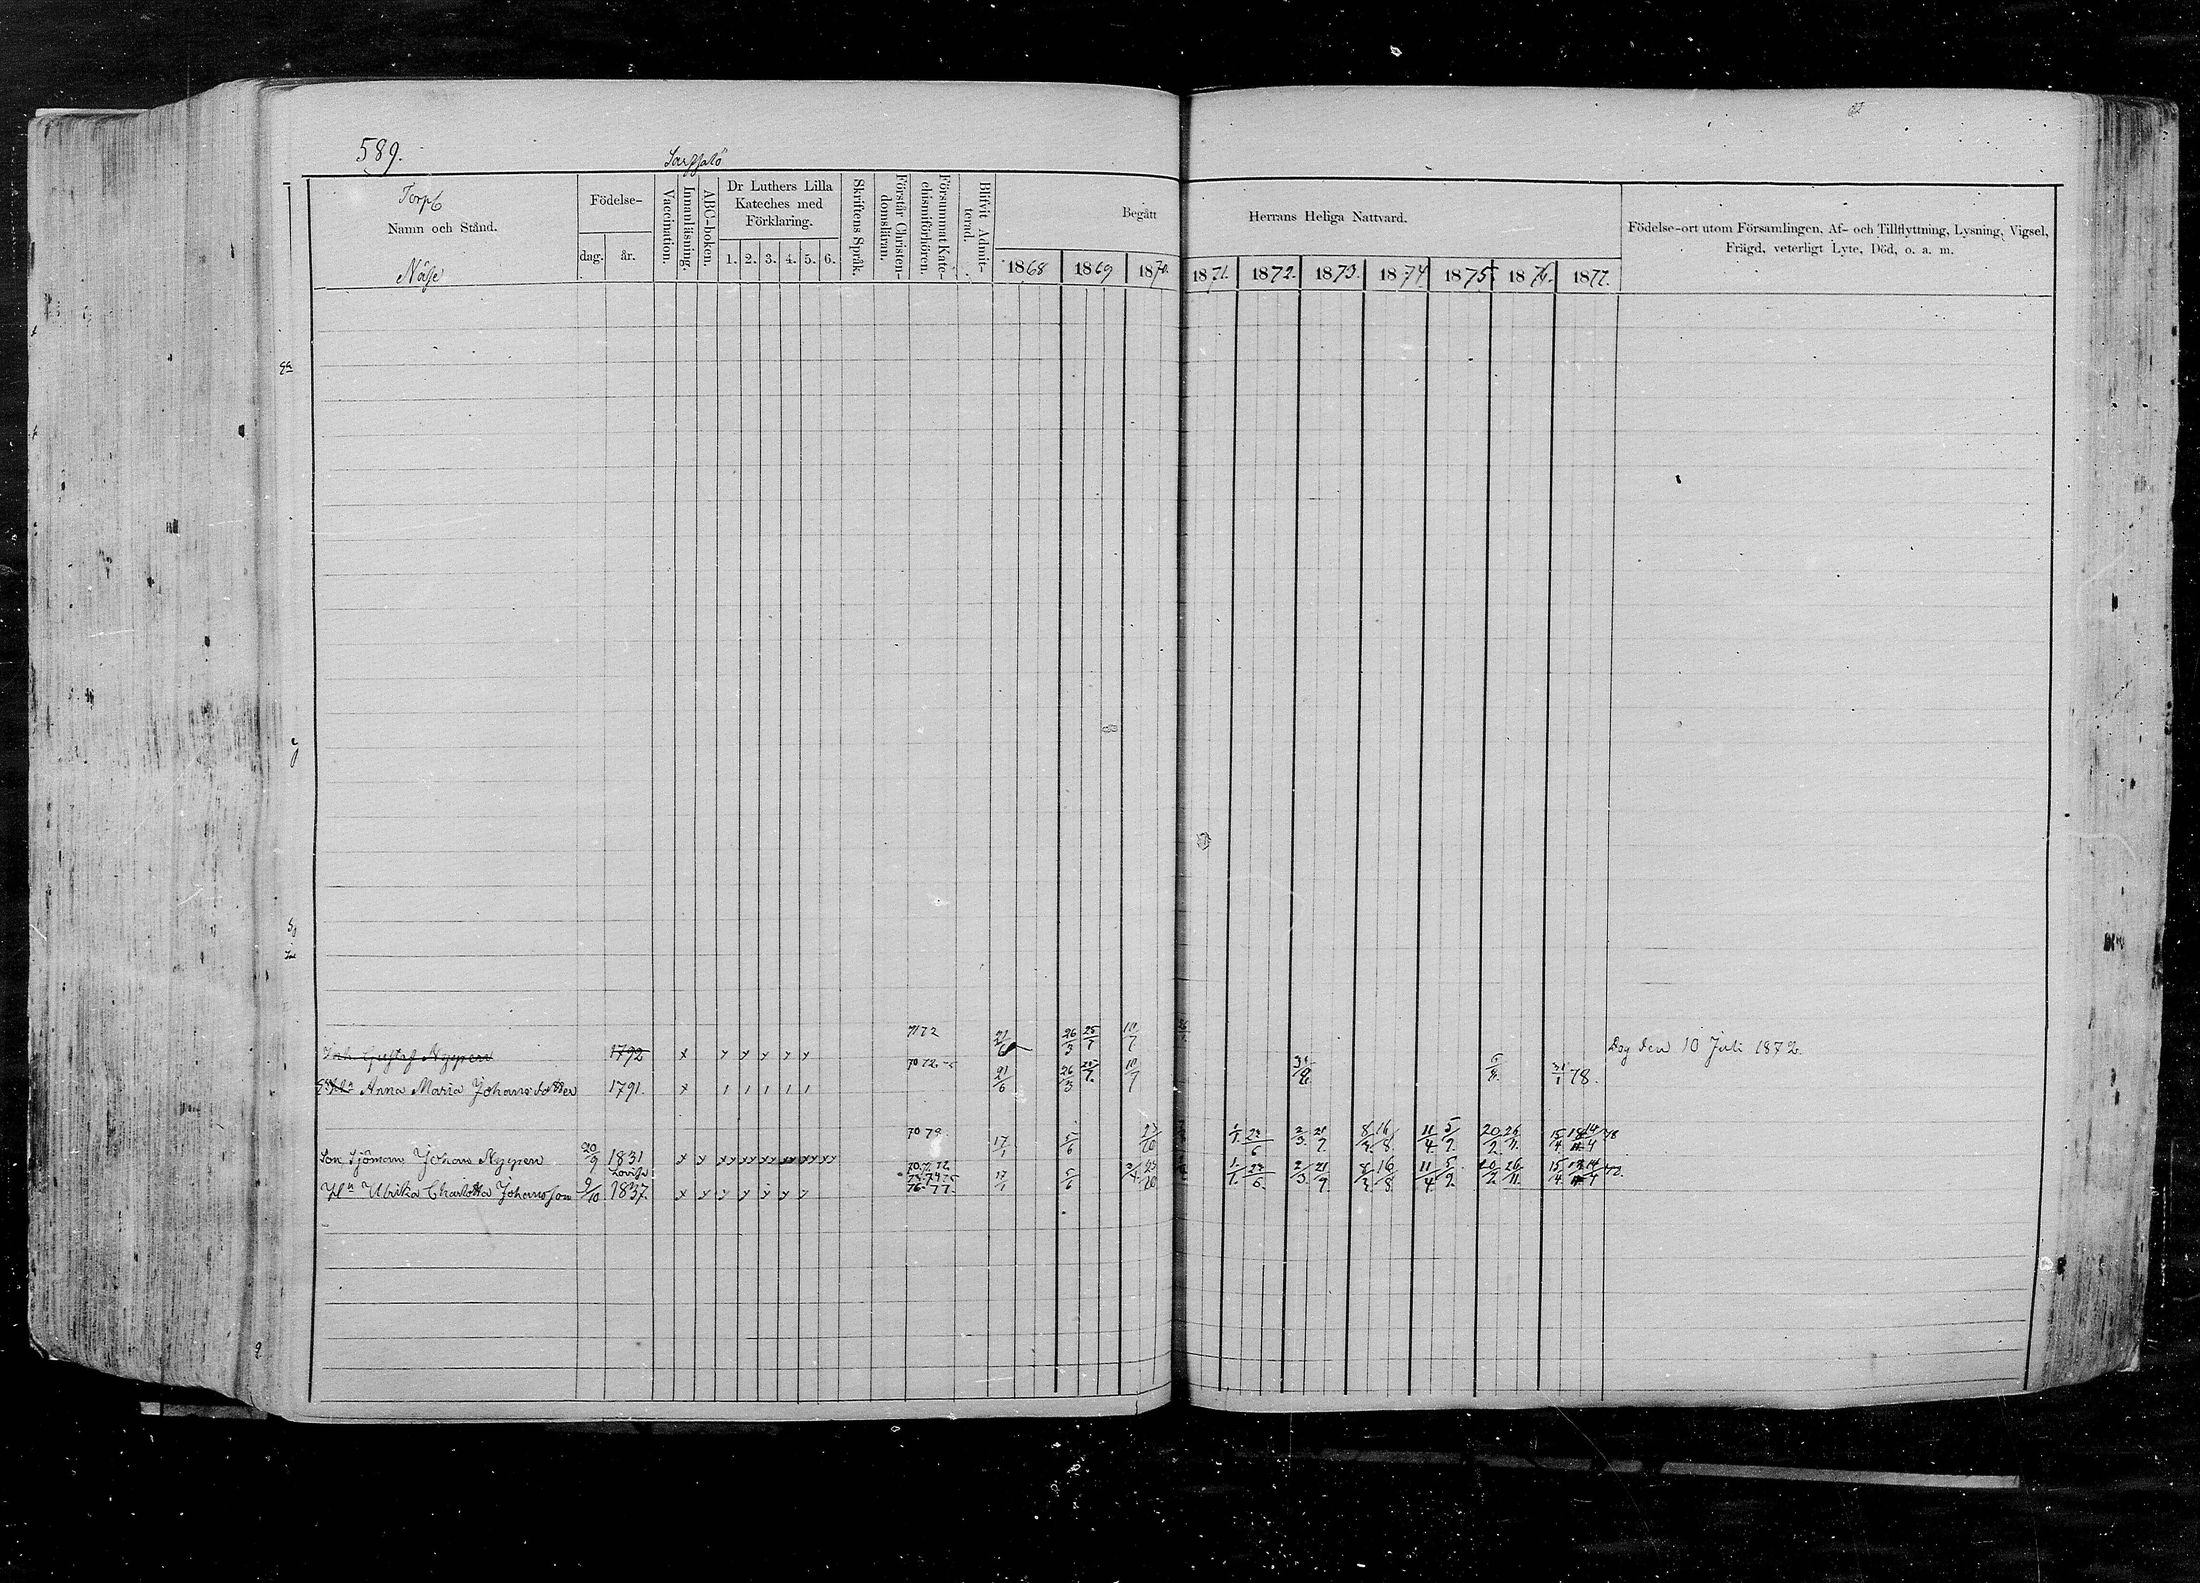 589.
Torp
Namn och Stånd.
Näse
Födelse-
dag. år.
Vaccination.
Innanläsning.
ABC-boken.
Dr Luthers Lilla
Kateches med
Förklaring.
1. 2. 3. 4. 5. 6.
Skriftens Språk.
Förstår Christen-
domsläran.
Försummat Kate-
chismiförhören.
Blifvit Admit-
terad.
Begått Herrans Heliga Nattvard.
1868 1869 1870. 1871. 1872. 1873. 1874 1875. 1876. 1877.
Födelse-ort utom Församlingen, Af- och Tillflyttning, Lysning, Vigsel,
Frägd, veterligt Lyte, Död, o. a. m.
Joh. Gustaf Nypen 1792 x y y y y y 7172 21/6 26/3 25/7 10/7 Dog den 10 Juli 1872.
Anna Maria Johansdotter 1791. x 1 1 1 1 1 21/6 26/3 25/7. 10/7 78.
Son Sjöman Johan Nypen 20/9 1831 x x 17/1 5/6 23/10 1/1. 23/6 2/3. 21/9 8/3 16/8 11/4. 5/9. 20/2. 26/11. 15/4 14/4 78
Lovisa
Hn Ulrika Charlotta Johansson 9/10 1837. x y y y y y y 70.71.72 76.77. 17/1 5/6 23/10 1/1. 23/6. 2/3. 21/9. 8/3 16/8 11/4. 5/9. 20/2. 26/11. 15/4 14/4